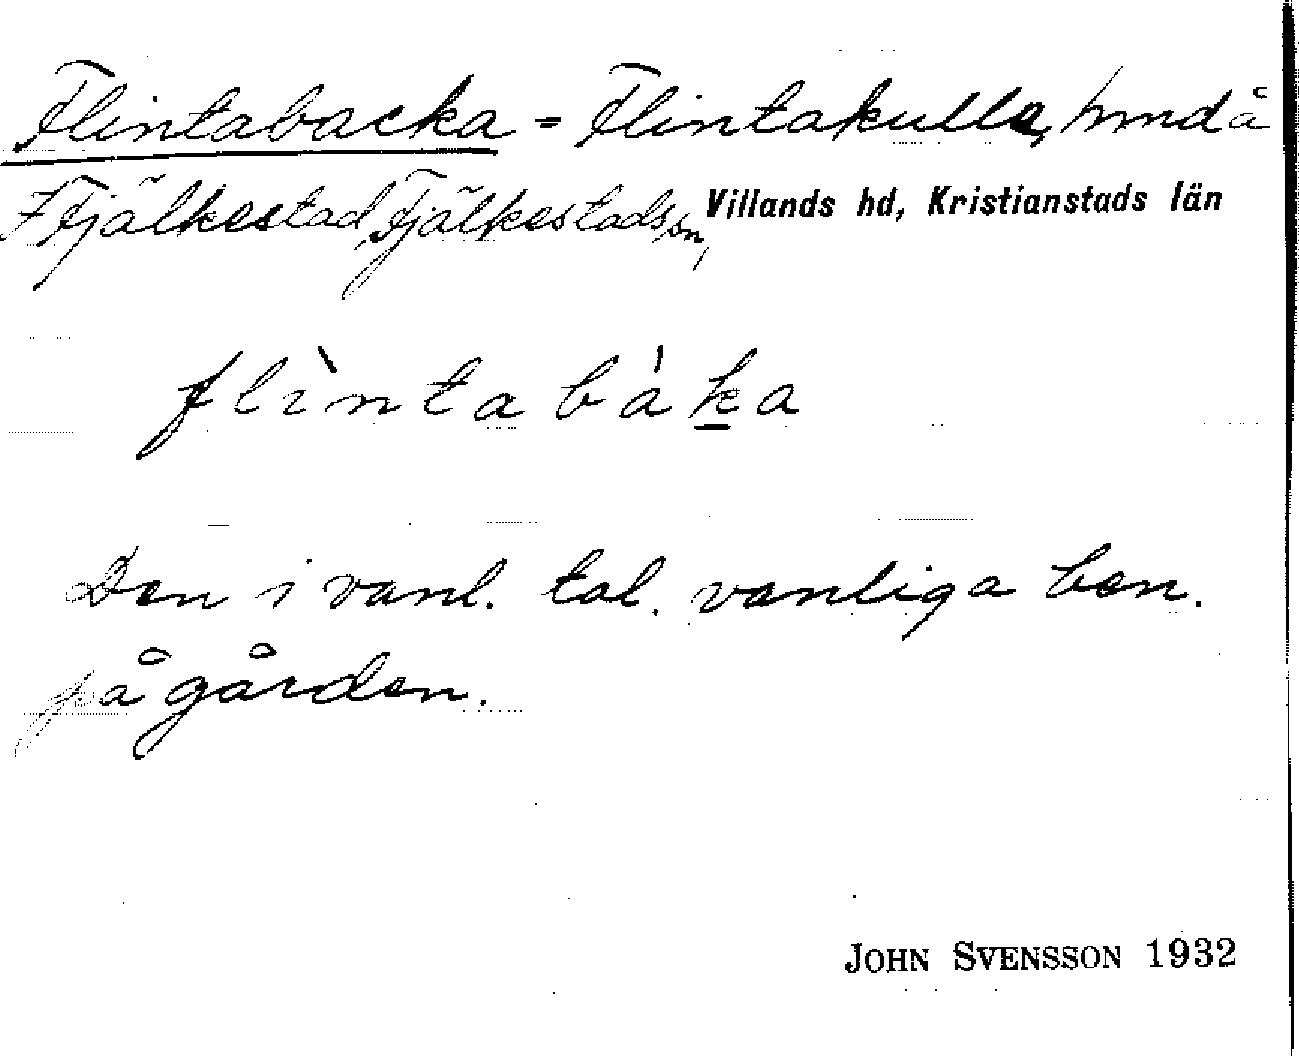 Flintabacka = Flintakulle, hmd å
7 Fjälkestad, Fjälkestads sn, Villands hd, Kristianstads län
flìntabàka
Den i vanl. tal. vanliga ben.
på gården.
JOHN SVENSSON 1932